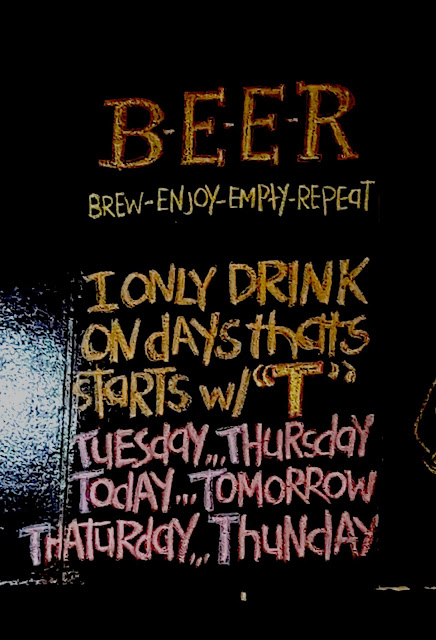 B-E-E-R
BREW-ENJOY-EMPTY-REPEAT
I ONLY DRINK
ON dAYS that's
STARTS w/ "T"
TUESday... THURSday
TOdAY... TOMORROW
THATURday... THUNdAY